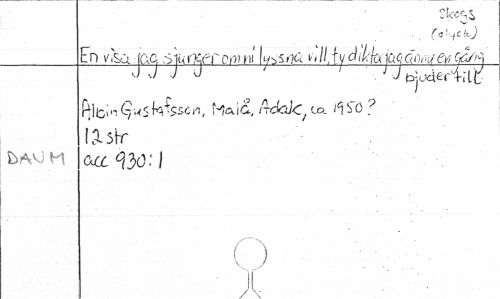 Skogs
(olycka)
En visa jag sjunger om ni lyssna vill, ty dikta jag ännu en gång
bjuder till.
Albin Gustafsson, Malå, Adak, ca 1950?
12 str
DAUM acc 930:1